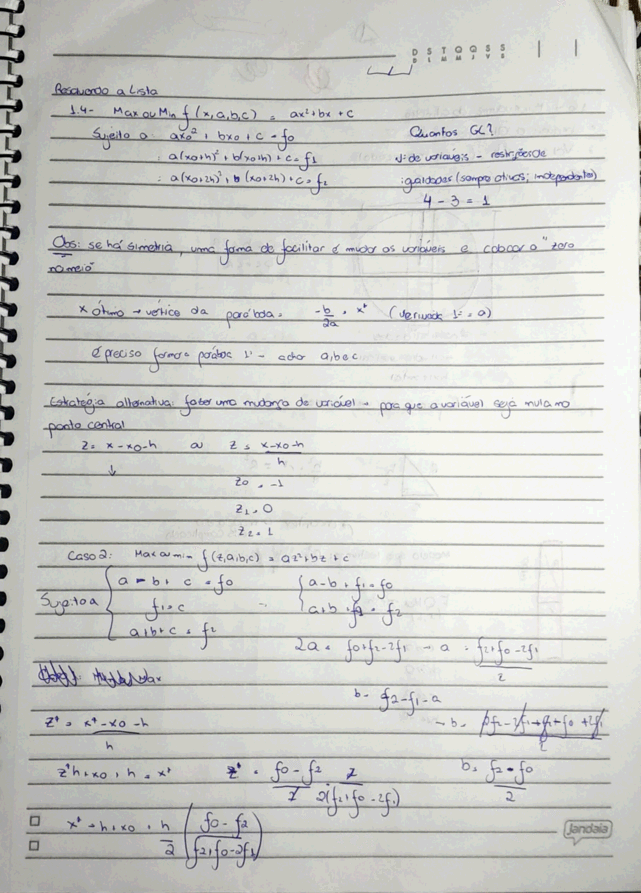 D S T Q Q S S
D L M M J V S
Resolvendo a Lista
1.4- Max ou Min f(x,a,b,c) = ax²+bx+c
Sujeito a: ax0²+bx0+c=f0 Quantos GL?
: a(x0+h)²+b(x0+h)+c=f1 nº de variáveis - restrições de
: a(x0+2h)²+b(x0+2h)+c=f2 igualdades (sempre ativas; independente)
4-3=1
Obs: se há simetria, uma forma de facilitar é mudar as variáveis e colocar o "zero
no meio"
x ótimo → vértice da parábola = -b/2a = x* (derivada 1ª = 0)
é preciso formar a parábola 1º - achar a, b e c
Estratégia alternativa: fazer uma mudança de variável → para que a variável seja nula no
ponto central
z = x-x0-h ou z = (x-x0-h)/h
↓ z0 = -1
z1 = 0
z2 = 1
Caso 2: Max ou min f(z,a,b,c) = az²+bz+c
a-b+c=f0 a-b+f1=f0
Sujeito a f1=c ∴ a+b+f1=f2
a+b+c=f2
2a = f0+f2-2f1 → a = (f2+f0-2f1)/2
b = f2-f1-a
z* = (x*-x0-h)/h → b = (2f2-2f1-f2-f0+2f1)/2
z*h+x0+h=x* z* = (f0-f2)/2 · 2/(2(f2+f0-2f1)) b = (f2-f0)/2
x* = h+x0+h/2 ((f0-f2)/(f2+f0-2f1))
Jandaia